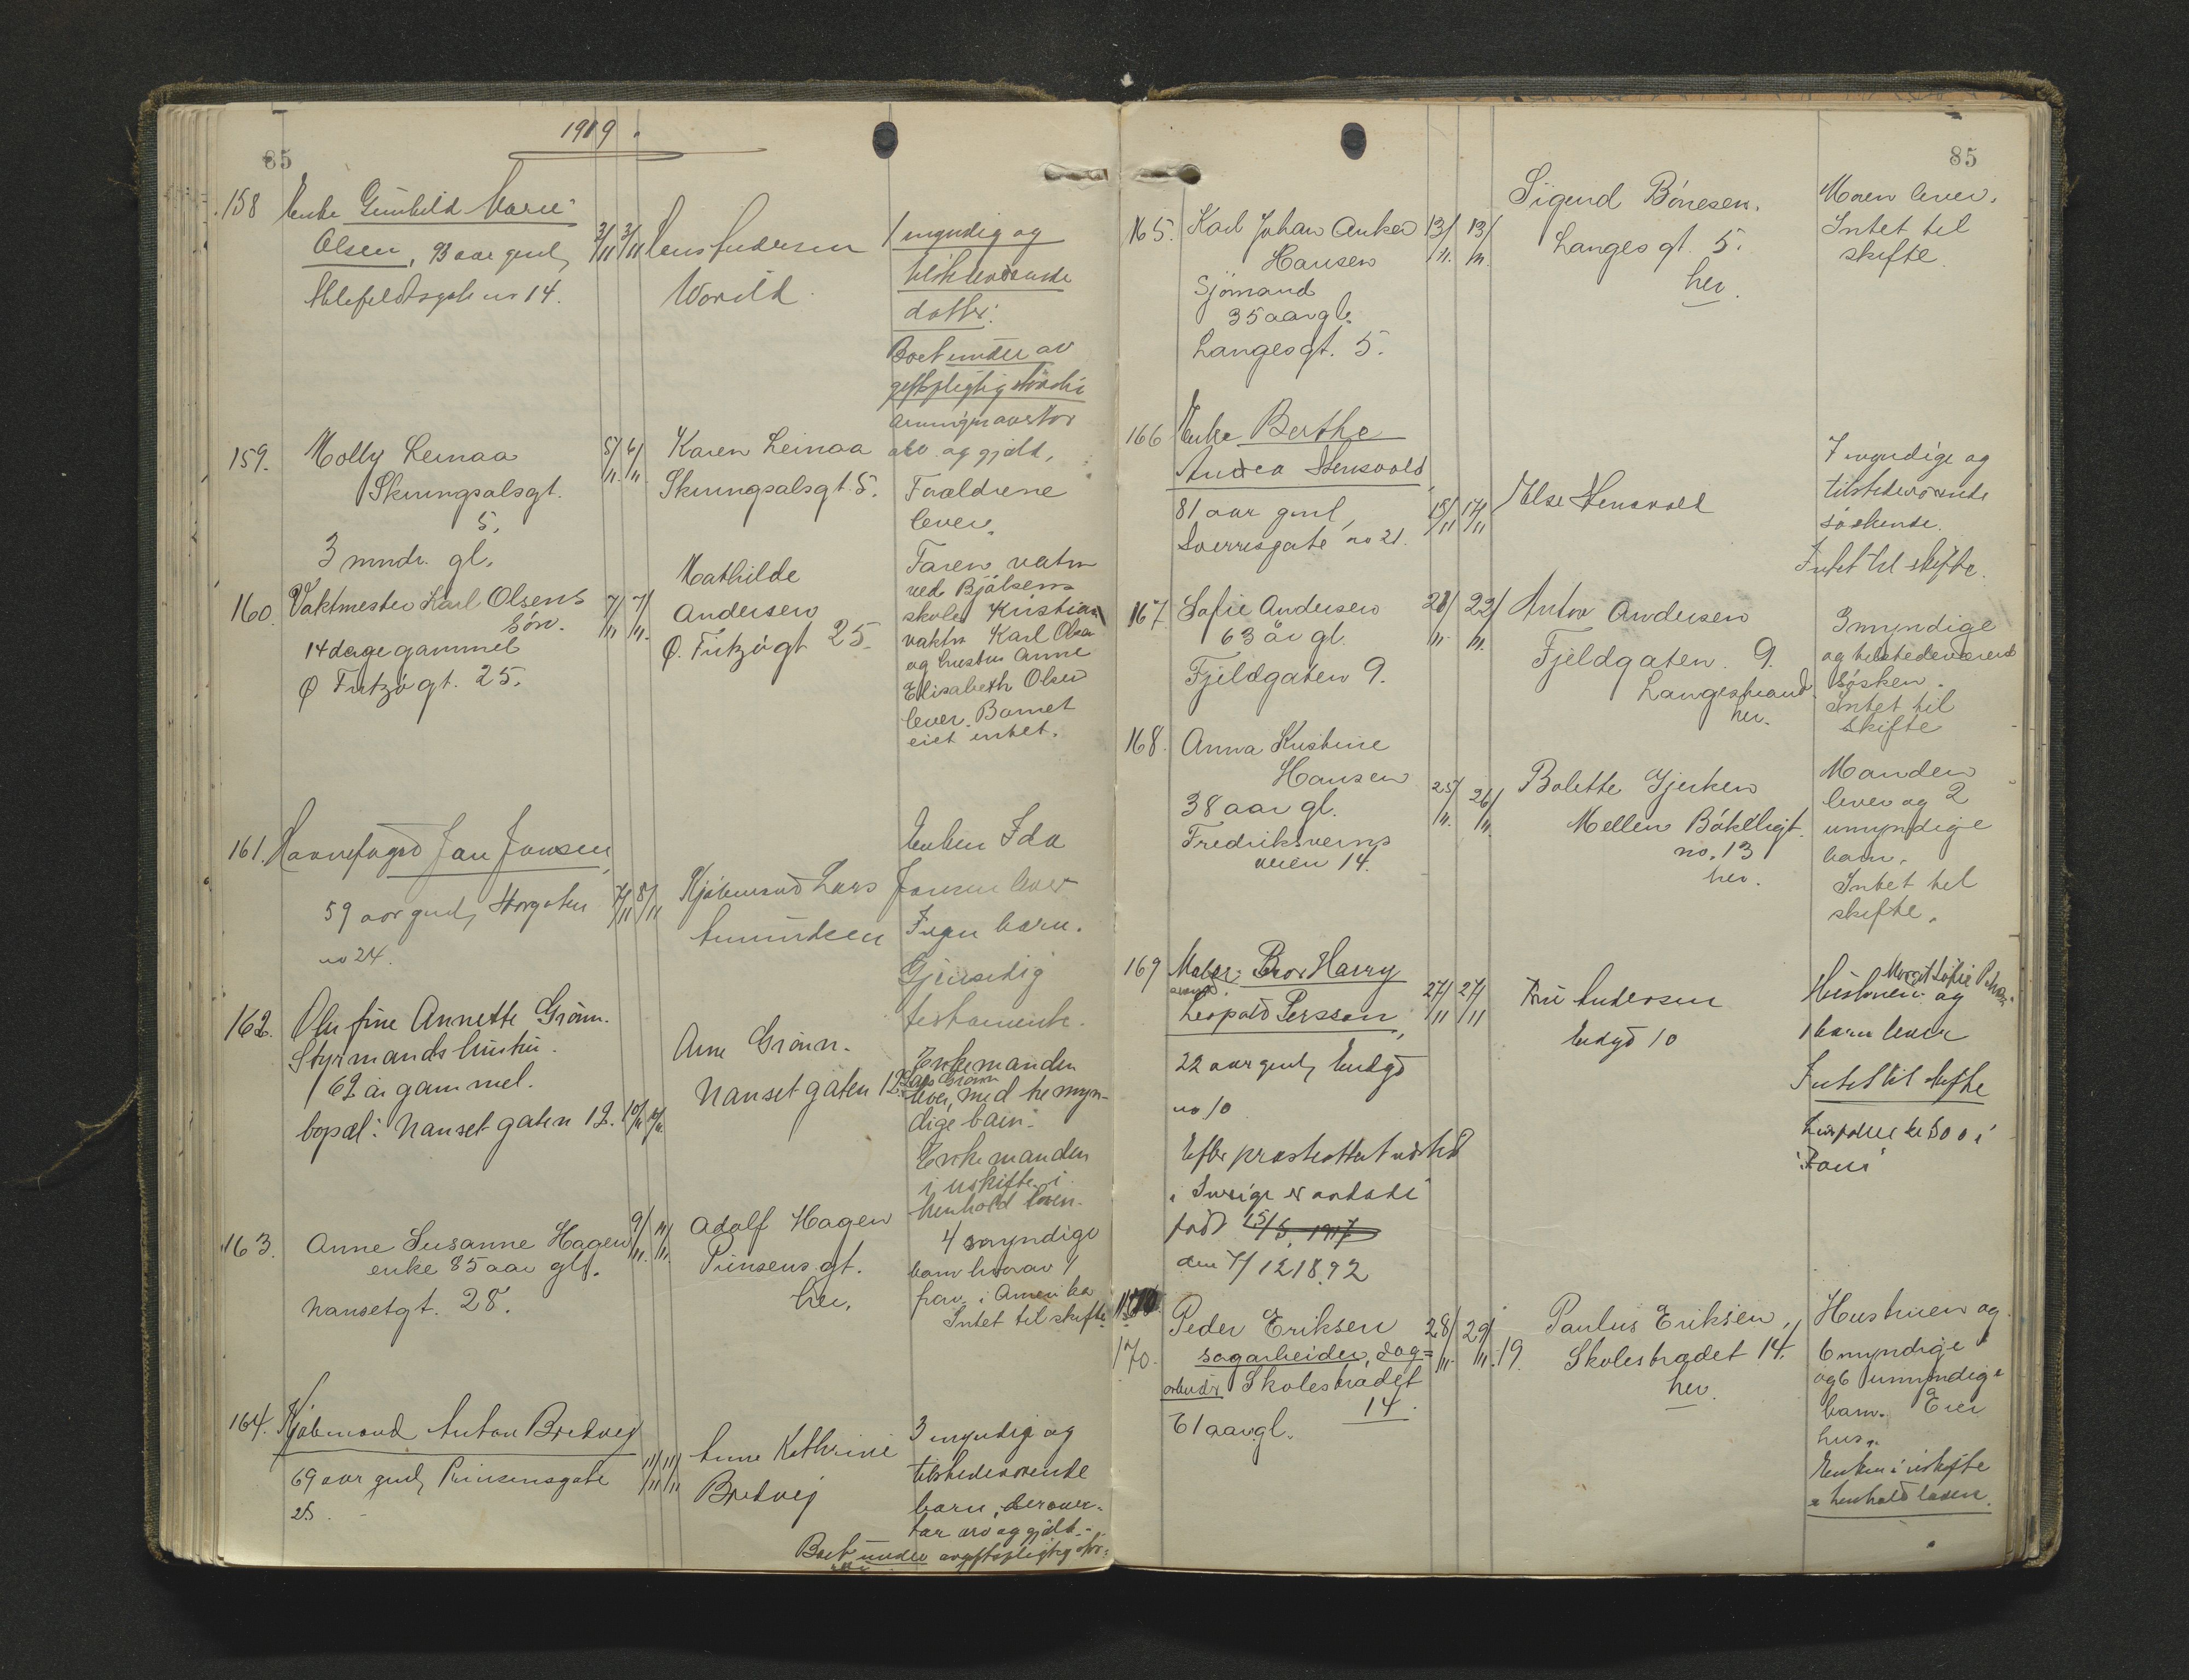 85
1919.
158 Enke Gunhild Marie
Olsen, 93 aar gml,
Ahlefeldtsgate no 14.
3/11 3/11
Lars Andersen
Vorild
1 myndig og
tilstedeværende
datter.
Boet under av
giftspligtig størrelse
arvingen overtar
arv og gjæld.
159. Molly Leinaa
Skiringsalsgt.
5.
3 mndr. gl.
5/11. 6/11.
Karen Leinaa
Skiringsalsgt. 5.
Forældrene
lever.
160. Vaktmester Karl Olsens
søn.
14 dage gammel
Ø Fritzøgt. 25.
7/11 7/11.
Mathilde
Andersen
Ø. Fritzøgt 25.
Faren vaktm
ved Bjølsens
skole, Kristian
vaktm Karl Olsen
og hustru Anne
Elisabeth Olsen
lever. Barnet
eiet intet.
161. Havnefoged Jan Jansen,
59 aar gml, Storgaten
no 24.
7/11 8/11
Kjøbmand Lars
Amundsen
Enken Ida
Jansen lever
Ingen barn.
Gjensidig
testamente.
162. Olufine Annette Grønn.
Styrmandshustru.
62 år gammel.
bopæl: Nansetgaten 12.
10/11 10/11
Arne Grønn.
Nansetgaten 12
Enkemanden
Lars Grønn
lever, med tre myn-
dige barn.
Enkemanden
i uskifte i
henhold loven.
163. Anne Susanne Hagen
enke 85 aar gl.
Nansetgt. 28.
9/11. 11/11.
Adolf Hagen
Prinsens gt.
her.
4 myndige
barn hvorav 1
frav. i Amerika
Intet til skifte
164. Kjøbmand Anton Bredvej
69 aar gml, Prinsensgate
25.
11/11 11/11
Anne Kathrine
Bredvej
3 myndige og
tilstedeværende
barn, der over-
tar arv og gjæld.
Boet under avgiftspligtig stør-
relse
85
165. Karl Johan Anker
Hansen
Sjömand
35 aar gl.
Langesgt. 5.
13/11. 13/11.
Sigurd Bónesen.
Langes gt. 5.
her.
Moren lever.
Intet til
skifte.
166 Enke Berthe
Andrea Stensvold
81 aar gml,
Sverresgate no 21.
15/11 17/11
Else Stensvold
7 myndige og
tilstedeværende
søskende.
Intet til skifte.
167 Sofie Andersen
63 år gl.
Fjeldgaten 9.
20/11. 22/11.
Anton Andersen
Fjeldgaten. 9.
Langestrand.
her.
3 myndige
og tilstedeværend
søsken.
Intet til
skifte
168. Anna Kristine
Hansen
38 aar gl.
Fredriksverns
veien 14.
25/11. 26/11.
Bolette Gjerken
Mellem Bökeligt.
no. 13
her.
Manden
lever og 2
umyndige
barn.
Intet til
skifte.
169 Maler- Bror Harry
svend.
Leopold Persson,
22 aar gml,
no 10
27/11 27/11
Fru Andersen
10
Hustruen og
1 barn lever
Intet til skifte
Efter prestattest utstedt
i Sverige er avdøde
født 15/5. 1917
den 7/12 1892
170.
Peder Eriksen
sagarbeider, dag=
arbeider Skolestrædet
14.
61 aar gl.
28/11. 29/11. 19.
Paulus Eriksen,
Skolestrædet 14.
her.
Hustruen og
6 myndige
og 6 umyndige
barn. Eier
hus.
Enken i uskifte
i henhold loven.